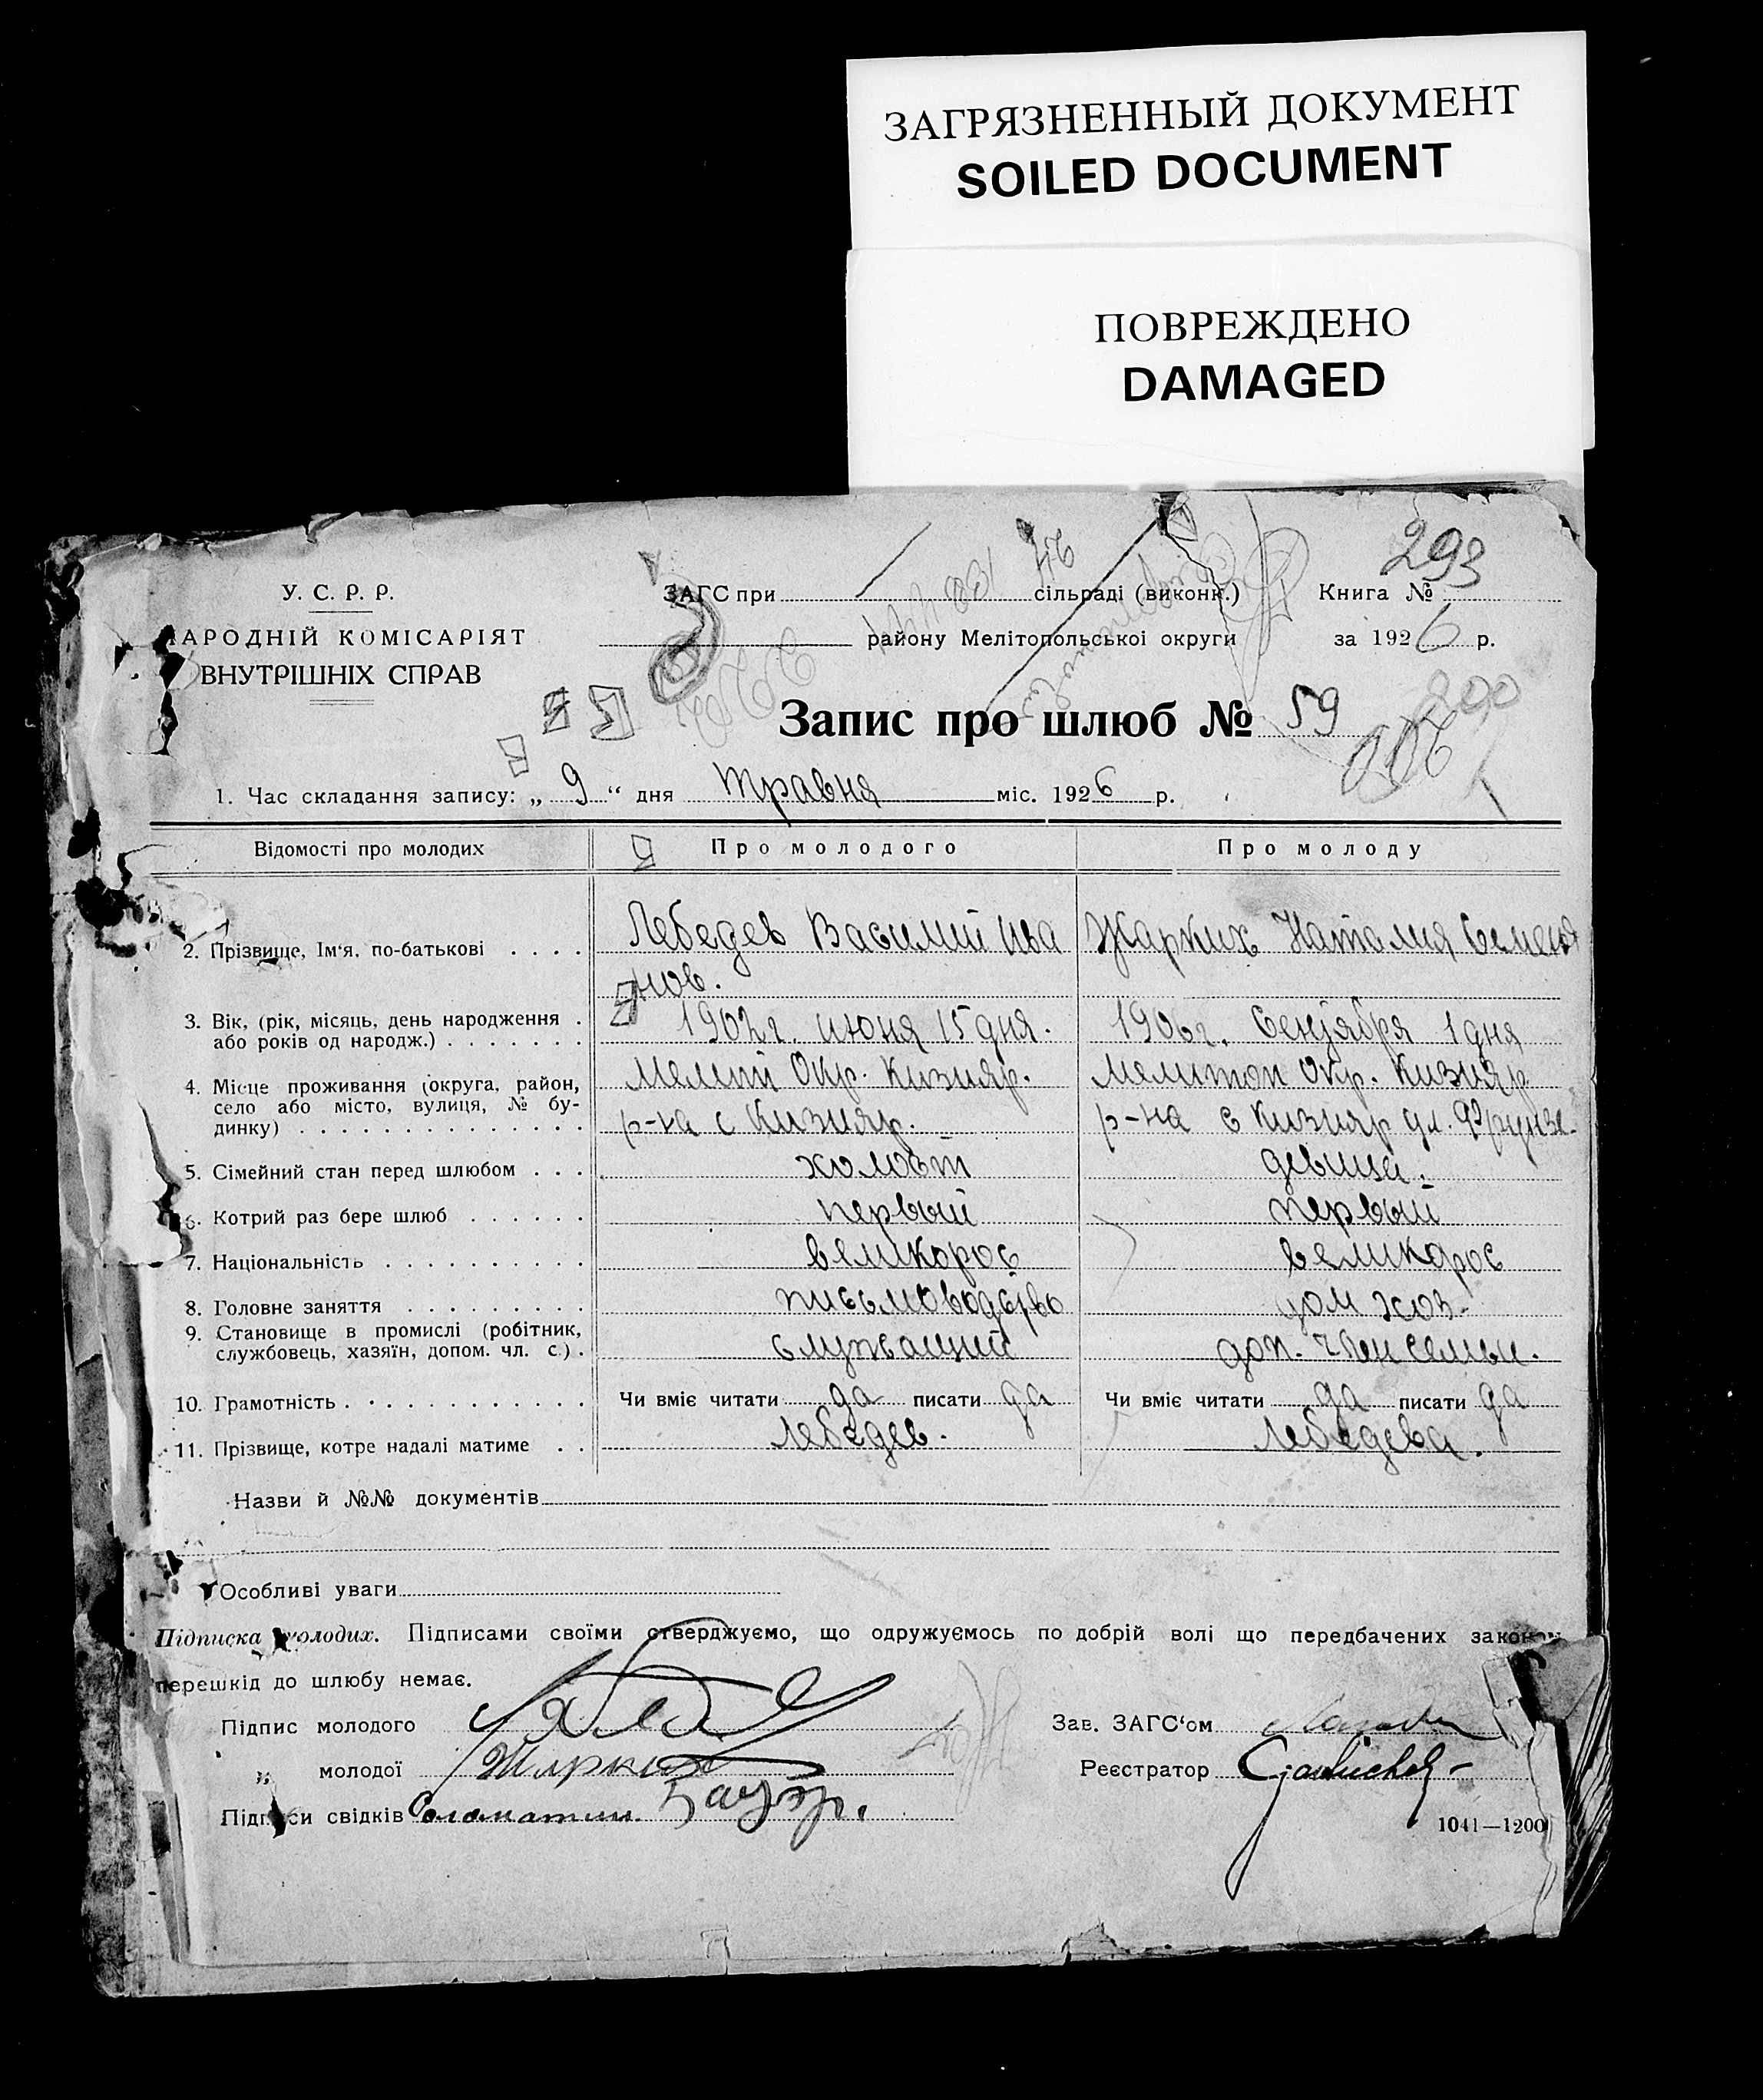 ЗАГРЯЗНЕННЫЙ ДОКУМЕНТ
SOILED DOCUMENT
ПОВРЕЖДЕНО
DAMAGED
293
У. С. Р. Р.
ЗАГС при сільраді (виконк.) Книга №
АРОДНІЙ КОМІСАРІЯТ
району Мелітопольської округи за 1926 р.
ВНУТРІШНІХ СПРАВ
200
Запис про шлюб № 59
1. Час складання запису: „ 9 “ дня травня міс. 1926 р.
Відомості про молодих Про молодого Про молоду
2. Прізвище, Ім'я, по-батькові . . . . Лебедев Василий Ива Жарких Наталия
нов.
3. Вік, (рік, місяць, день народження . 1902г. июня 15 дня. 1906г. Сентября 1 дня
або років од народж.) . . . . . . .
4. Місце проживання (округа, район, Мелит Окр. Кизияр. Мелитоп Окр. Кизияр
село або місто, вулиця, № бу-
динку) . . . . . . . . . . . . . . р-на с Кизияр. р-на с Кизияр ул. Фрунзе.
5. Сімейний стан перед шлюбом . . . холост девица.
6. Котрий раз бере шлюб . . . . . . первый первый
7. Національність . . . . . . . . . . великорос великорос
8. Головне заняття . . . . . . . . . письмоводство дом хоз.
9. Становище в промислі (робітник,
службовець, хазяїн, допом. чл. с.) . служащий доп. член семьи.
10. Грамотність . . . . . . . . . . . . Чи вміє читати да писати да Чи вміє читати да писати да
11. Прізвище, котре надалі матиме . . Лебедев. Лебедева.
Назви й №№ документів
Особливі уваги
Підписка молодих. Підписами своїми стверджуємо, що одружуємось по добрій волі що передбачених законом
перешкід до шлюбу немає.
Підпис молодого Зав. ЗАГС'ом
„ молодої Жарких Реєстратор
Підписи свідків Соломатин. Бауэр.
1041—1200